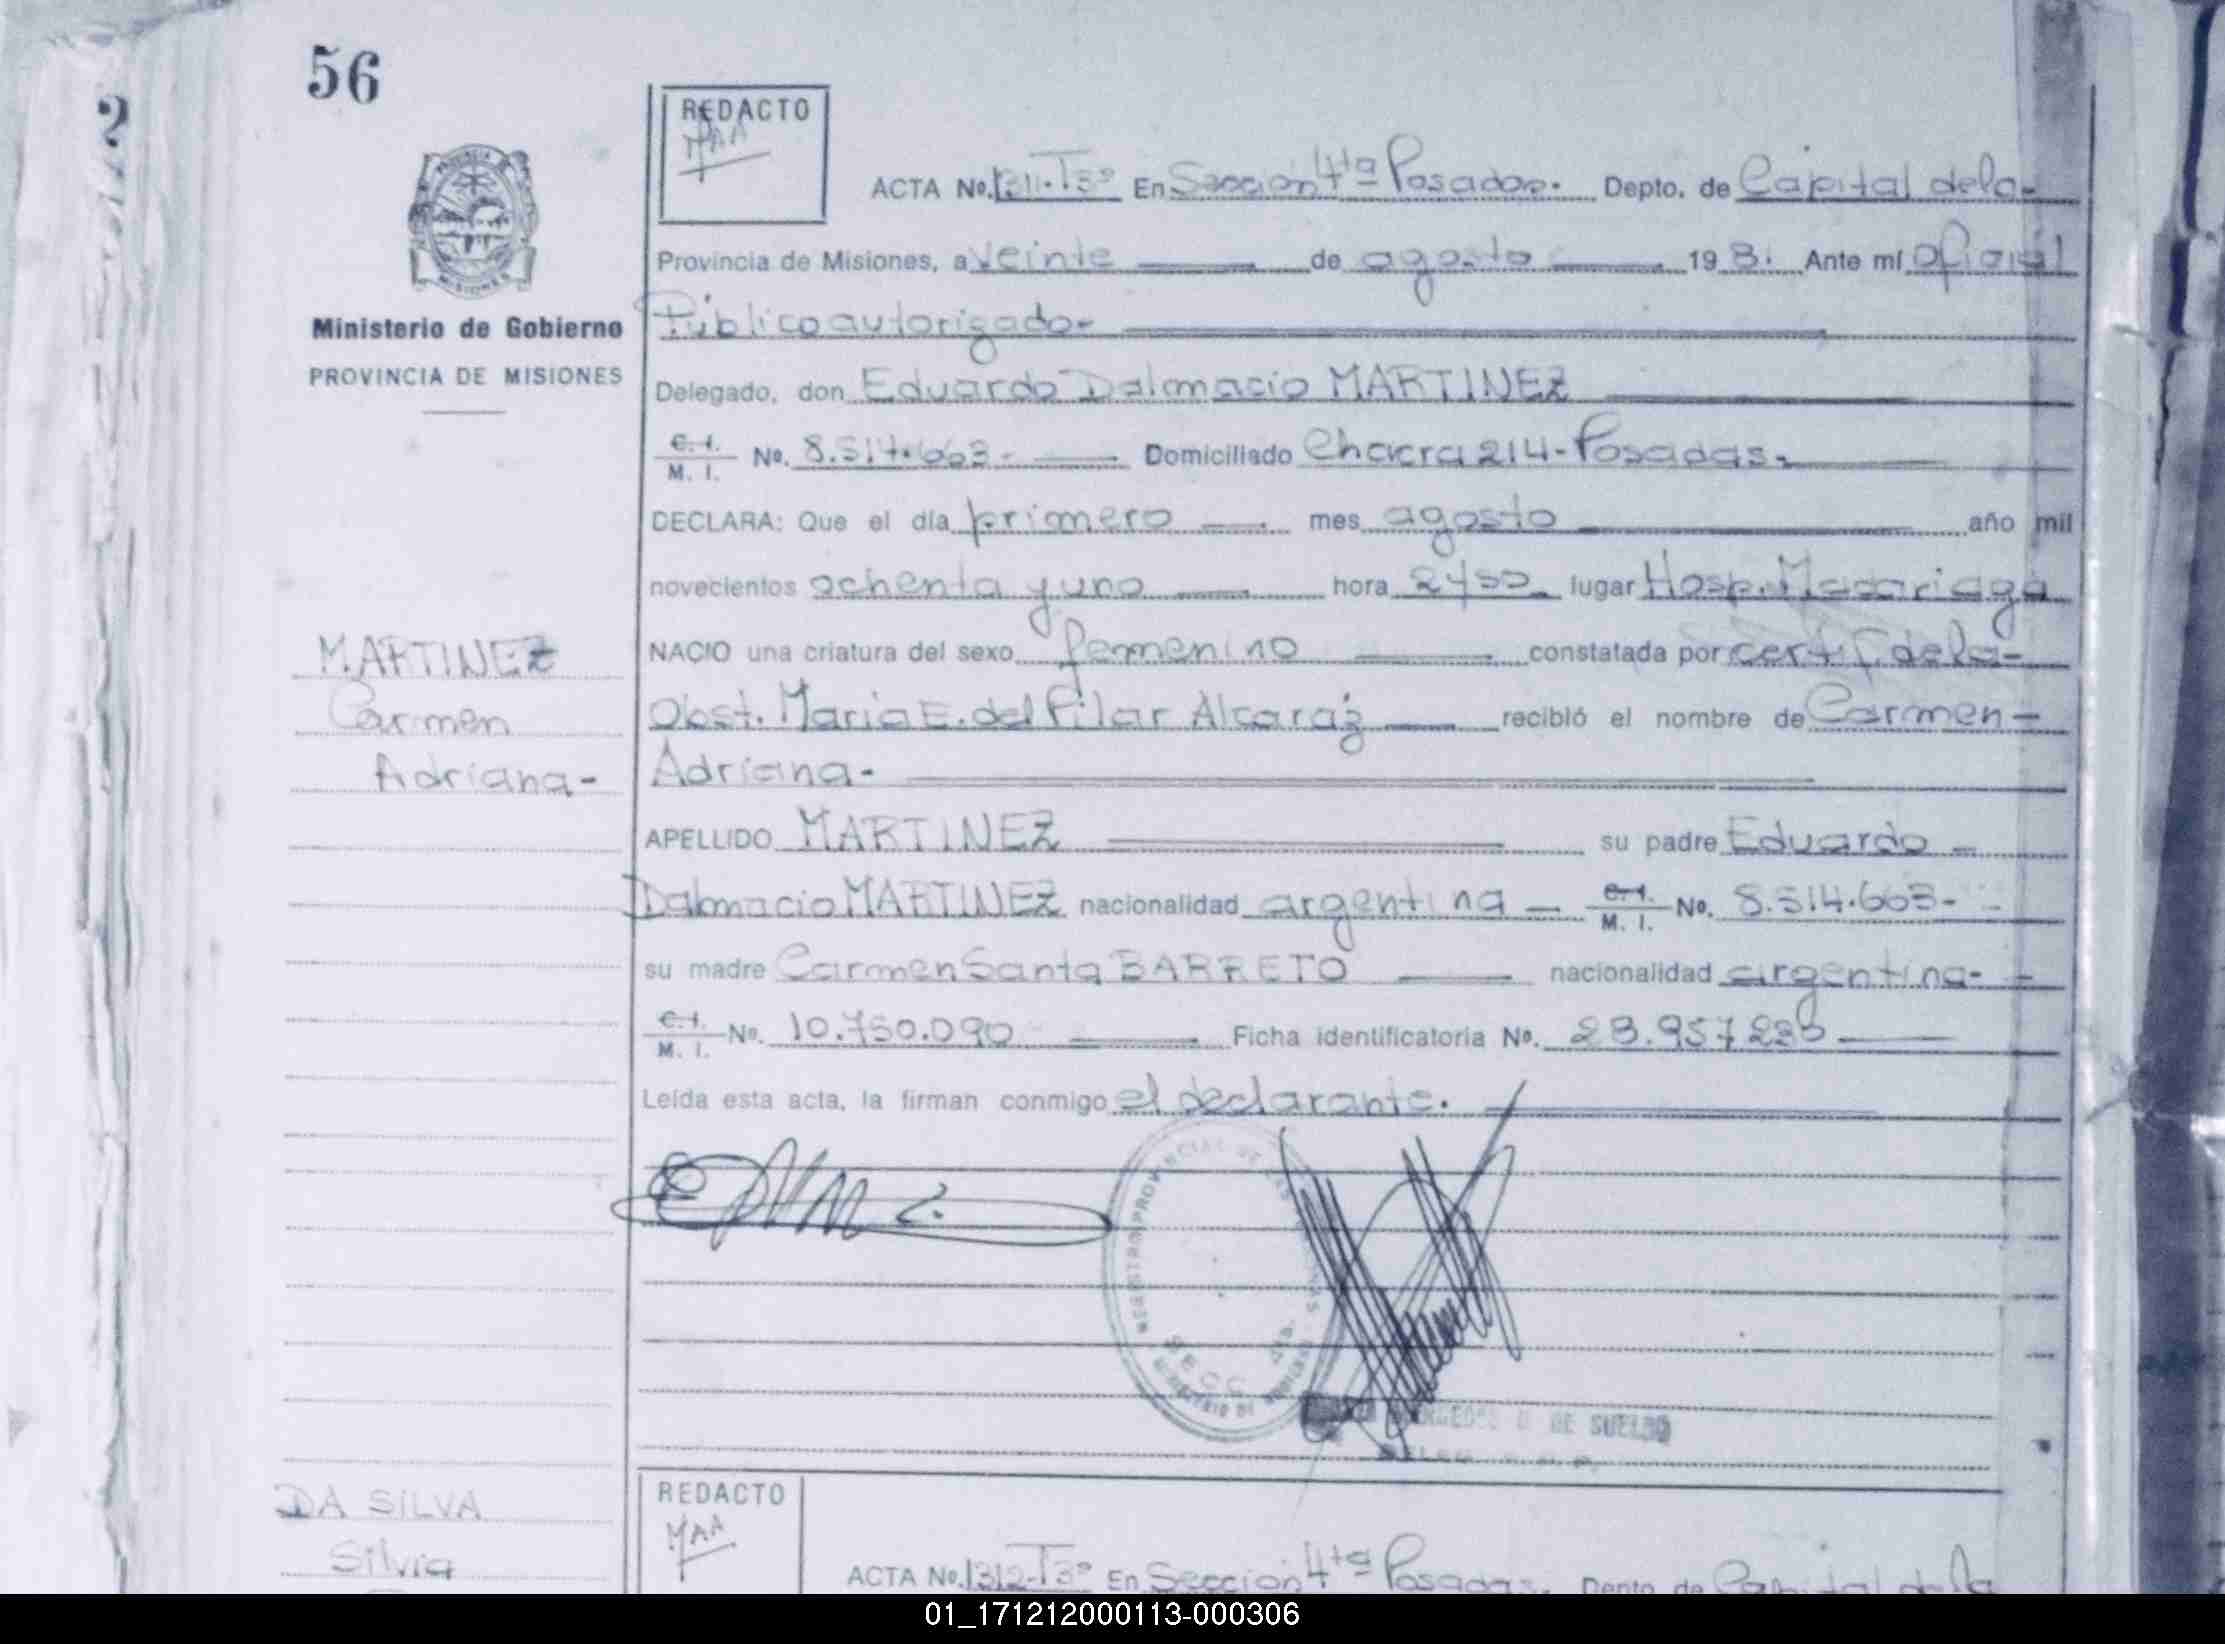 56
2
REDACTO
MAA
ACTA No. 1311-T3º En Sección 4ta Posadas. Depto. de Capital de la-
Provincia de Misiones, a veinte de agosto 1981. Ante mí Oficial
Público autorizado-
Ministerio de Gobierno
PROVINCIA DE MISIONES
Delegado, don Eduardo Dalmacio MARTINEZ
C. I.
M. I. No. 8.514.663- Domiciliado Chacra 214-Posadas.
DECLARA: Que el día primero mes agosto año mil
novecientos ochenta y uno hora lugar Hosp. Madariaga
NACIO una criatura del sexo femenino constatada por certif. de la-
MARTINEZ
Carmen
Adriana-
Obst. Maria E. del Pilar Alcaráz recibió el nombre de Carmen-
Adriana-
APELLIDO MARTINEZ su padre Eduardo
Dalmacio MARTINEZ nacionalidad argentina C. I.
M. I. No. 8.514.663-
su madre Carmen Santa BARRETO nacionalidad argentina-
C. I.
M. I. No. 10.750.090 Ficha identificatoria No.
Leída esta acta, la firman conmigo el declarante.
DE SUELDO
REDACTO
MAA
DA SILVA
Silvia
ACTA No. 1312-T3º En Sección 4ta Posadas. Depto. de Capital de la
01_171212000113-000306